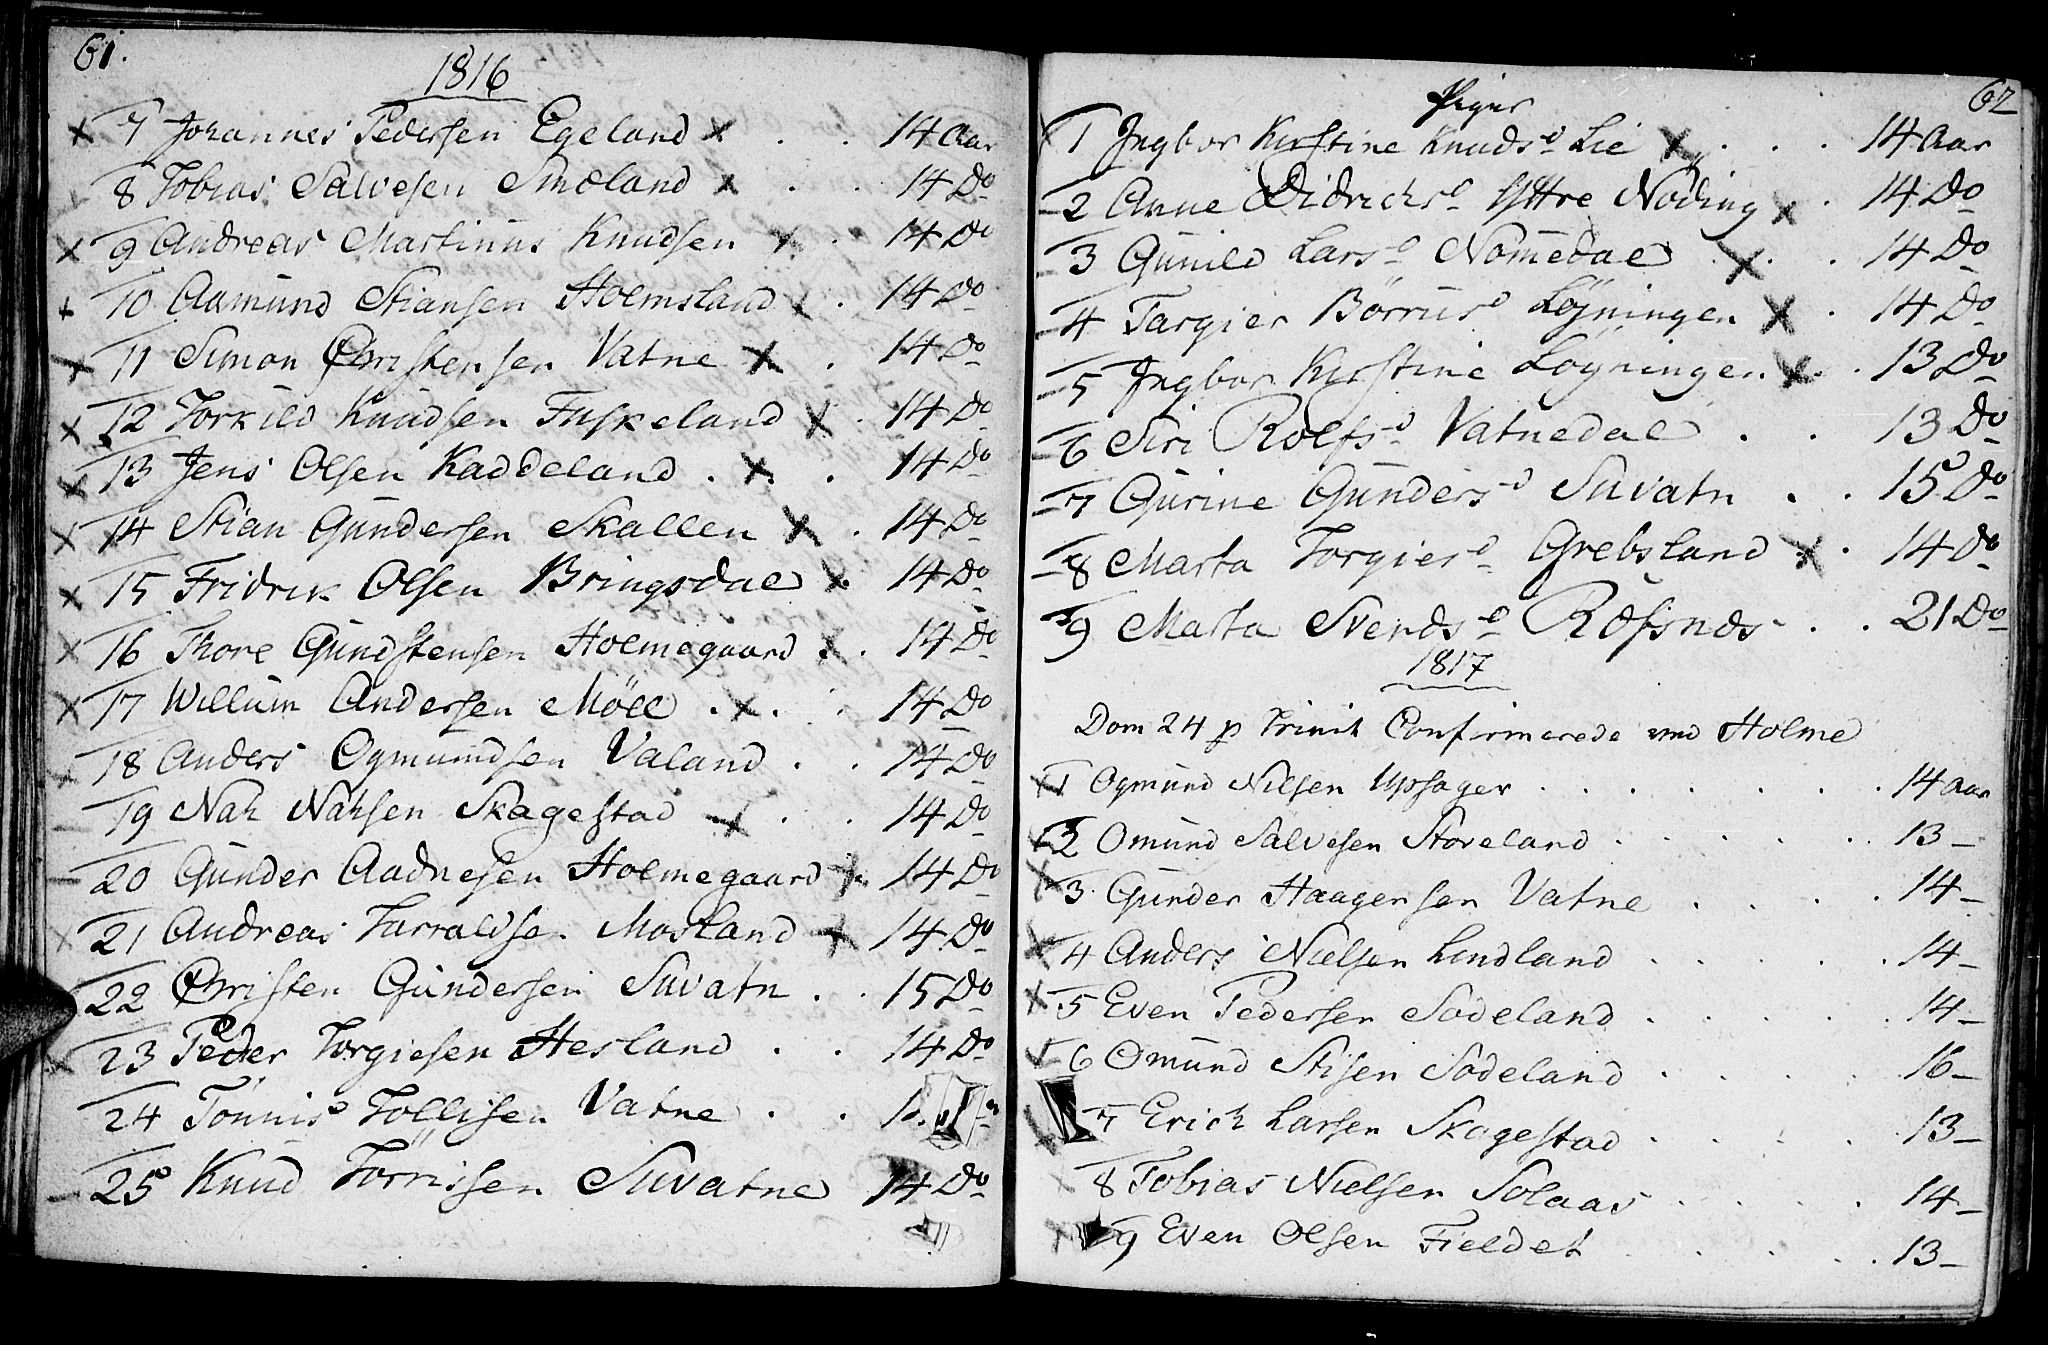 61.
1816
× 7 Johannes Pedersen Egeland × . . 14 Aar
8 Tobias Salvesen Smeland × . . 14 Do
× 9 Andreas Martinus Knudsen × . 14 Do
× 10 Aamund Stiansen Holmsland × . 14 Do
× 11 Simon Christensen Vatne × . 14 Do
× 12 Torkild Knudsen Fuskeland × . 14 Do
× 13 Jens Olsen Kaddeland . × . 14 Do
× 14 Stian Gundersen Skallen × . 14 Do
× 15 Fridrik Olsen Bringsdal × . 14 Do
× 16 Thore Gundstensen Holmegaard × . 14 Do
× 17 Willum Andersen Möll . × . . 14 Do
18 Anders Ogmundsen Valand . . 14 Do
19 Nah Nahsen Skagestad × . . 14 Do
20 Gunder Aadnesen Holmegaard × 14 Do
× 21 Andreas Tarraldse. Mosland × 14 Do
22 Christen Gundersen Suvatn . . 15 Do
× 23 Peder Torgiesen Hesland . . 14 Do
24 Tönnis Tollisen Vatne . .
25 Knud Törrissen Suvatne 14 Do
62
Piger
1 Ingbor Kirstine Knudsd Lie × . . . 14 Aar
2 Anne Didrichsd Yttre Nöding × . 14 Do
3 Gunild Larsd Nomedal . × . . 14 Do
4 Targier Börrusd Löyningen × . 14 Do
5 Ingbor Kirstine Löyningen × . . 13 Do
6 Siri Rolfsd Vatnedal . . 13 Do
7 Gurine Gundersd Suvatn . . 15 Do
8 Marta Torgiersd Grebsland × . 14 Do
9 Marta Svendsd Röfsnds . . 21 Do
1817
Dom 24 p Trinit Confirmerede ved Holme
× 1 Ogmund Nilsen Upsager . . . . . . . 14 Aar
2 Omund Salvesen Stoveland . . . . . . 13 –
× 3 Gunder Haagensen Vatne . . . . 14 –
× 4 Anders Nielsen Lindland . . . . . 14 –
× 5 Even Pedersen Sodeland . . . . . 14 –
× 6 Omund Stisen Sodeland . . . . 16 –
7 Erich Larsen Skagestad . . . . 13 –
× 8 Tobias Nielsen Solaas . . . . 14 –
× 9 Even Olsen Fieldet . . . . 13 –